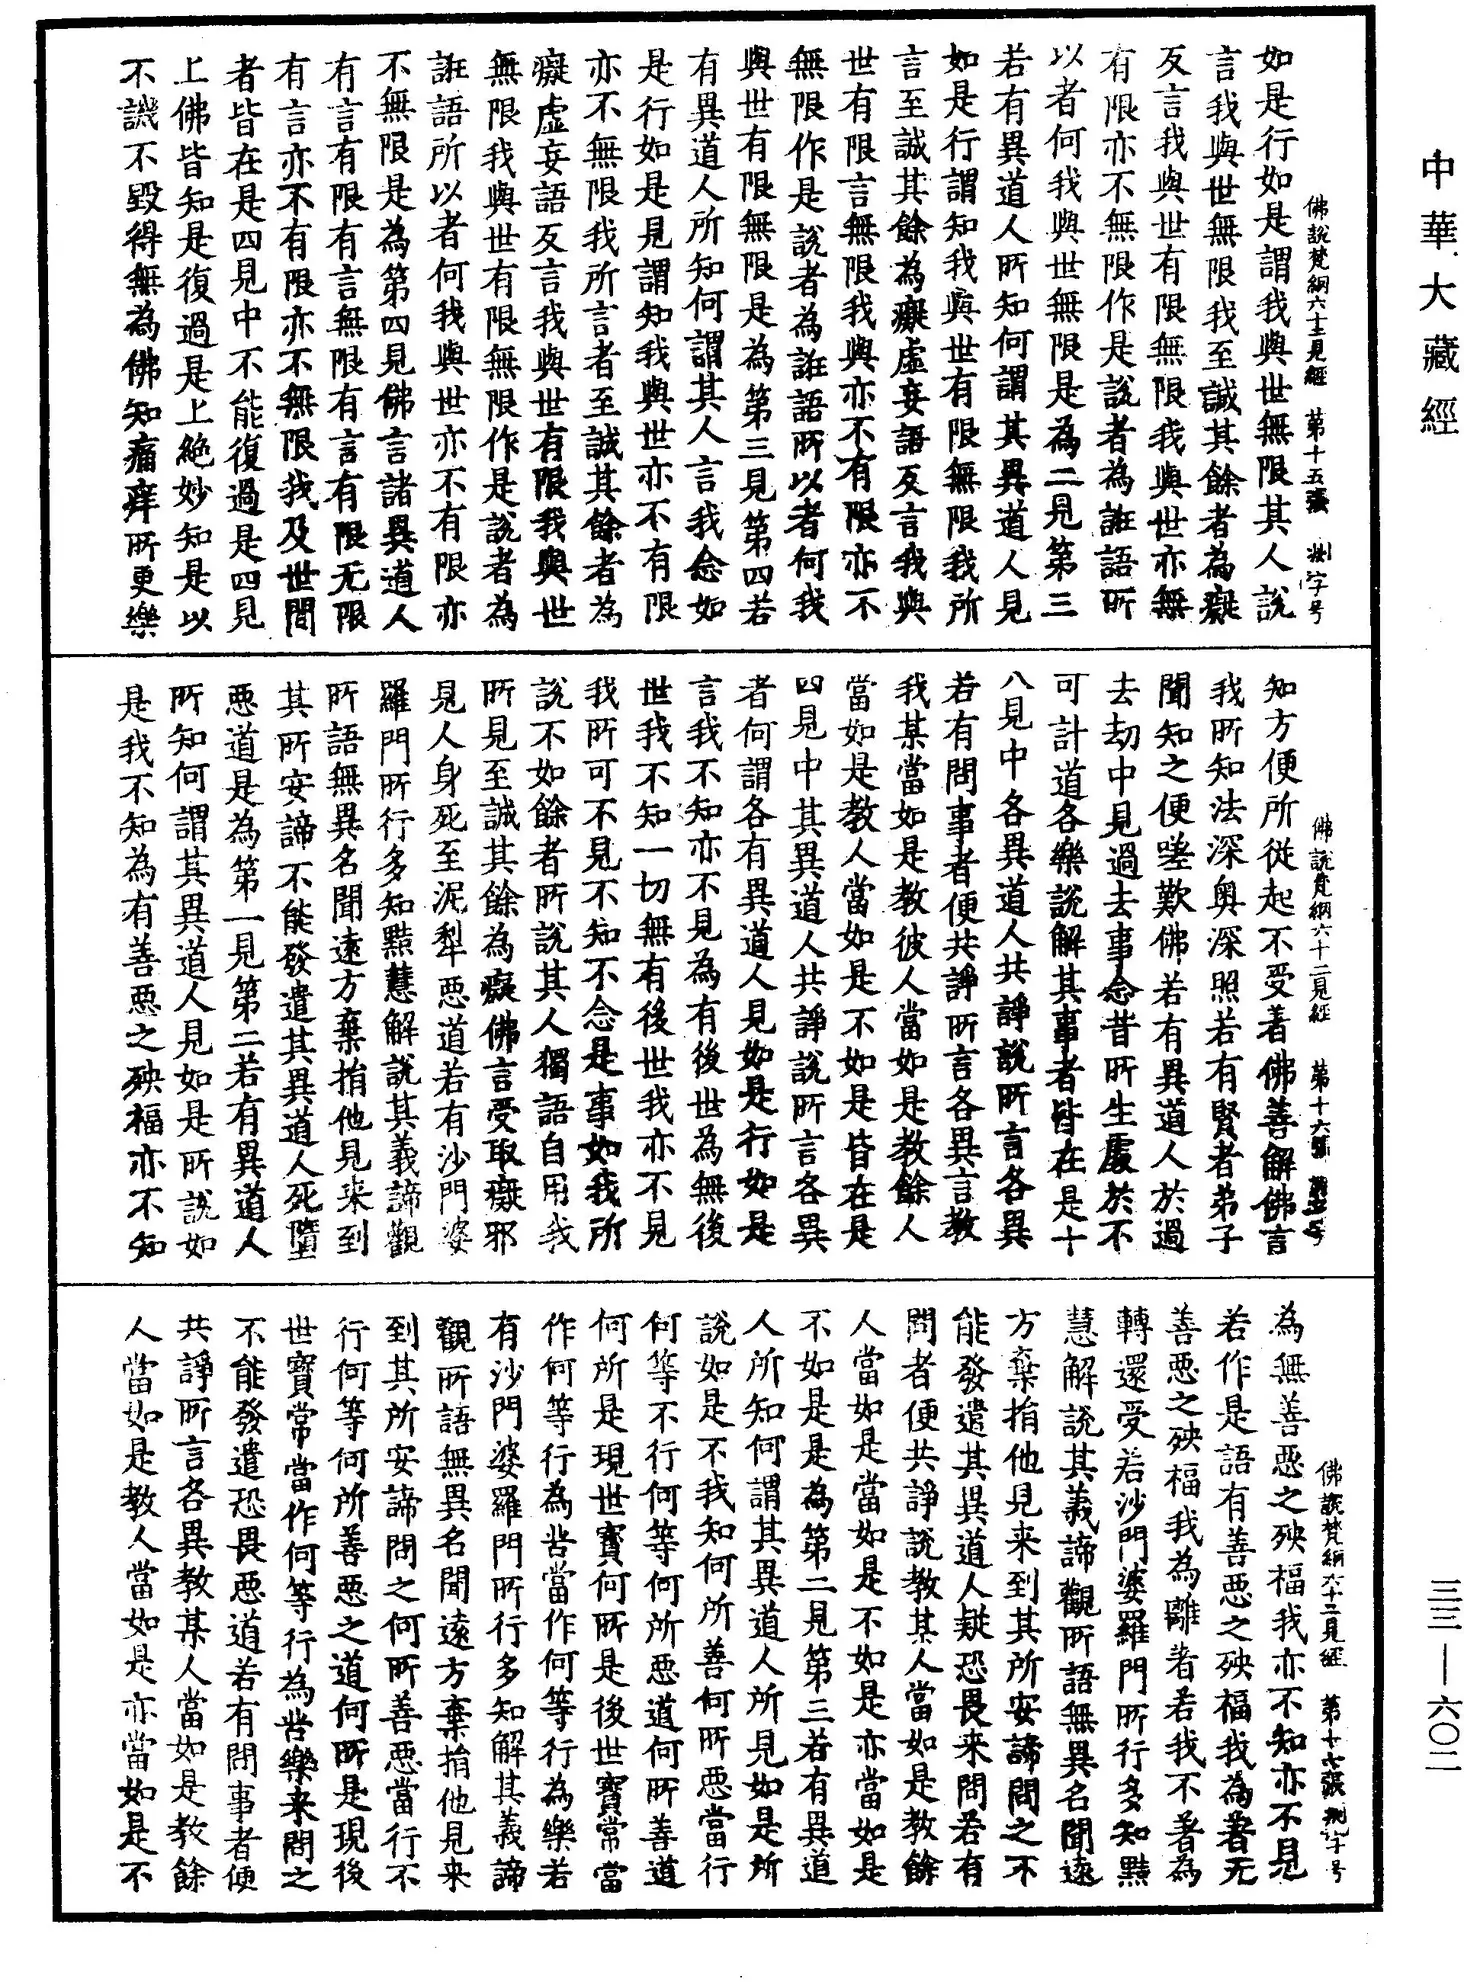 中華大藏經
佛說梵網六十二見經　第十五張　𣃁字号
如是行如是謂我與世無限其人說
言我與世無限我至誠其餘者為癡
反言我與世有限無限我與世亦無
有限亦不無限作是說者為誑語所
以者何我與世無限是為二見第三
若有異道人所知何謂其異道人見
如是行謂知我與世有限無限我所
言至誠其餘為癡虛妄語反言我與
世有限言無限我與亦不有限亦不
無限作是說者為誑語所以者何我
與世有限無限是為第三見第四若
有異道人所知何謂其人言我念如
是行如是見謂知我與世亦不有限
亦不無限我所言者至誠其餘者為
癡虛妄語反言我與世有限我與世
無限我與世有限無限作是說者為
誑語所以者何我與世亦不有限亦
不無限是為第四見佛言諸異道人
有言有限有言無限有言有限无限
有言亦不有限亦不無限我及世間
者皆在是四見中不能復過是四見
上佛皆知是復過是上絶妙知是以
不譏不毀得無為佛知痛痒所更樂
佛說梵網六十二見經　第十六張
知方便所從起不受著佛善解佛言
我所知法深奧深照若有賢者弟子
聞知之便嗟歎佛若有異道人於過
去劫中見過去事念昔所生處於不
可計道各樂說解其事者皆在是十
八見中各異道人共諍說所言各異
若有問事者便共諍所言各異言教
我某當如是教彼人當如是教餘人
當如是教人當如是不如是皆在是
四見中其異道人共諍說所言各異
者何謂各有異道人見如是行如是
言我不知亦不見為有後世為無後
世我不知一切無有後世我亦不見
我所可不見不知不念是事如我所
說不如餘者所說其人獨語自用我
所見至誠其餘為癡佛言受取癡邪
見人身死至泥犁惡道若有沙門婆
羅門所行多知黠慧解說其義諦觀
所語無異名聞遠方棄捐他見来到
其所安諦不能發遣其異道人死墮
惡道是為第一見第二若有異道人
所知何謂其異道人見如是所說如
是我不知為有善惡之殃福亦不知
佛說梵網六十二見經　第十七張　𣃁字号
為無善惡之殃福我亦不知亦不見
若作是語有善惡之殃福我為著无
善惡之殃福我為離著若我不著為
轉還受若沙門婆羅門所行多知黠
慧解說其義諦觀所語無異名聞遠
方棄捐他見来到其所安諦問之不
能發遣其異道人疑恐畏来問若有
問者便共諍說教某人當如是教餘
人當如是當如是不如是亦當如是
不如是是為第二見第三若有異道
人所知何謂其異道人所見如是所
說如是不我知何所善何所惡當行
何等不行何等何所惡道何所善道
何所是現世寶何所是後世寶常當
作何等行為苦當作何等行為樂若
有沙門婆羅門所行多知解其義諦
觀所語無異名聞遠方棄捐他見来
到其所安諦問之何所善惡當行不
行何等何所善惡之道何所是現後
世寶常當作何等行為苦樂来問之
不能發遣恐畏惡道若有問事者便
共諍所言各異教某人當如是教餘
人當如是教人當如是亦當如是不
三三—六〇二